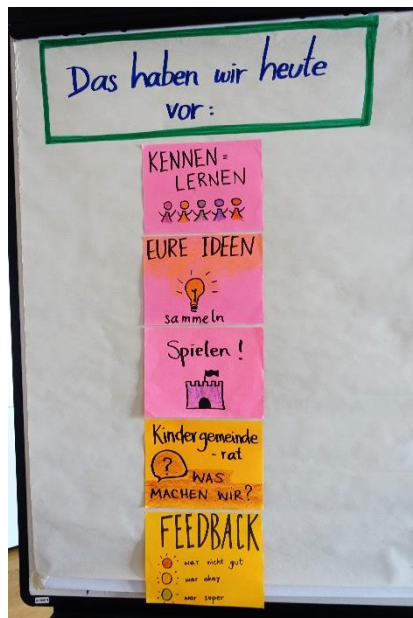 Das haben wir heute
vor:
KENNEN=
LERNEN
EURE IDEEN
sammeln
Spielen!
Kindergemeinde
-rat
?
WAS
MACHEN WIR?
FEEDBACK
war nicht gut
war okay
war super